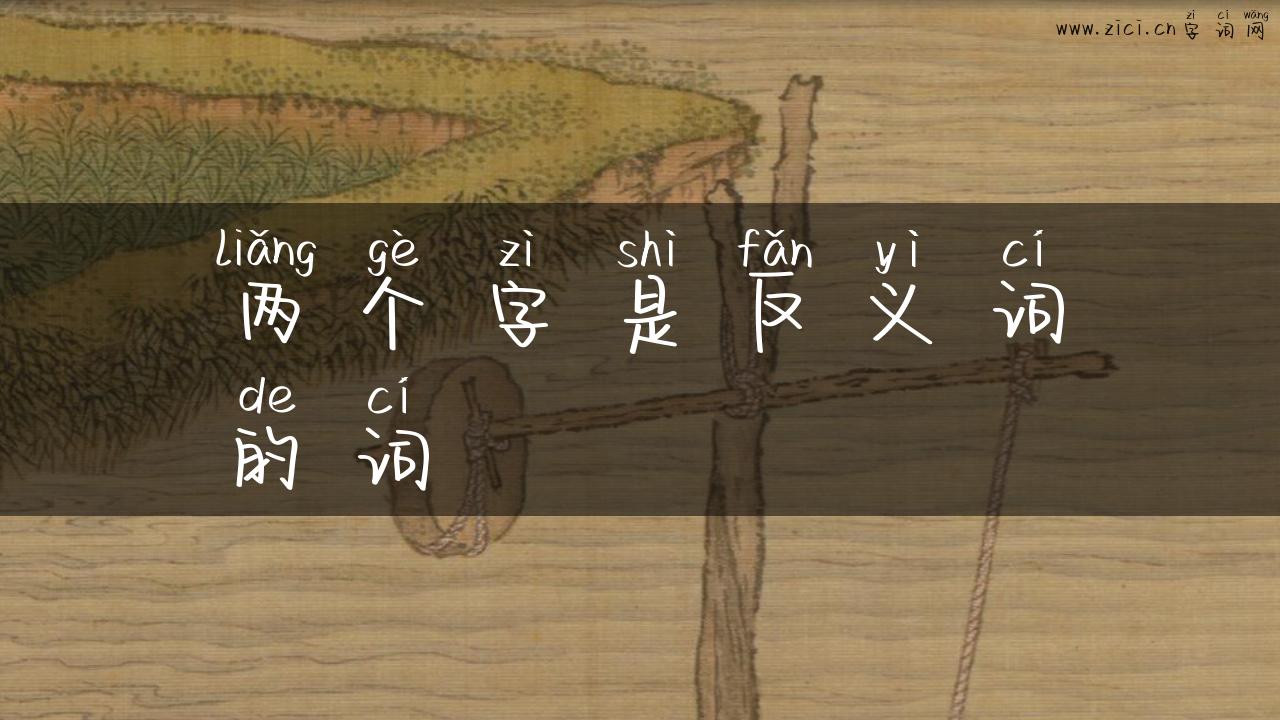 zì cí wǎng
www.zici.cn 字词网
liǎng gè zì shì fǎn yì cí
两个字是反义词
de cí
的词